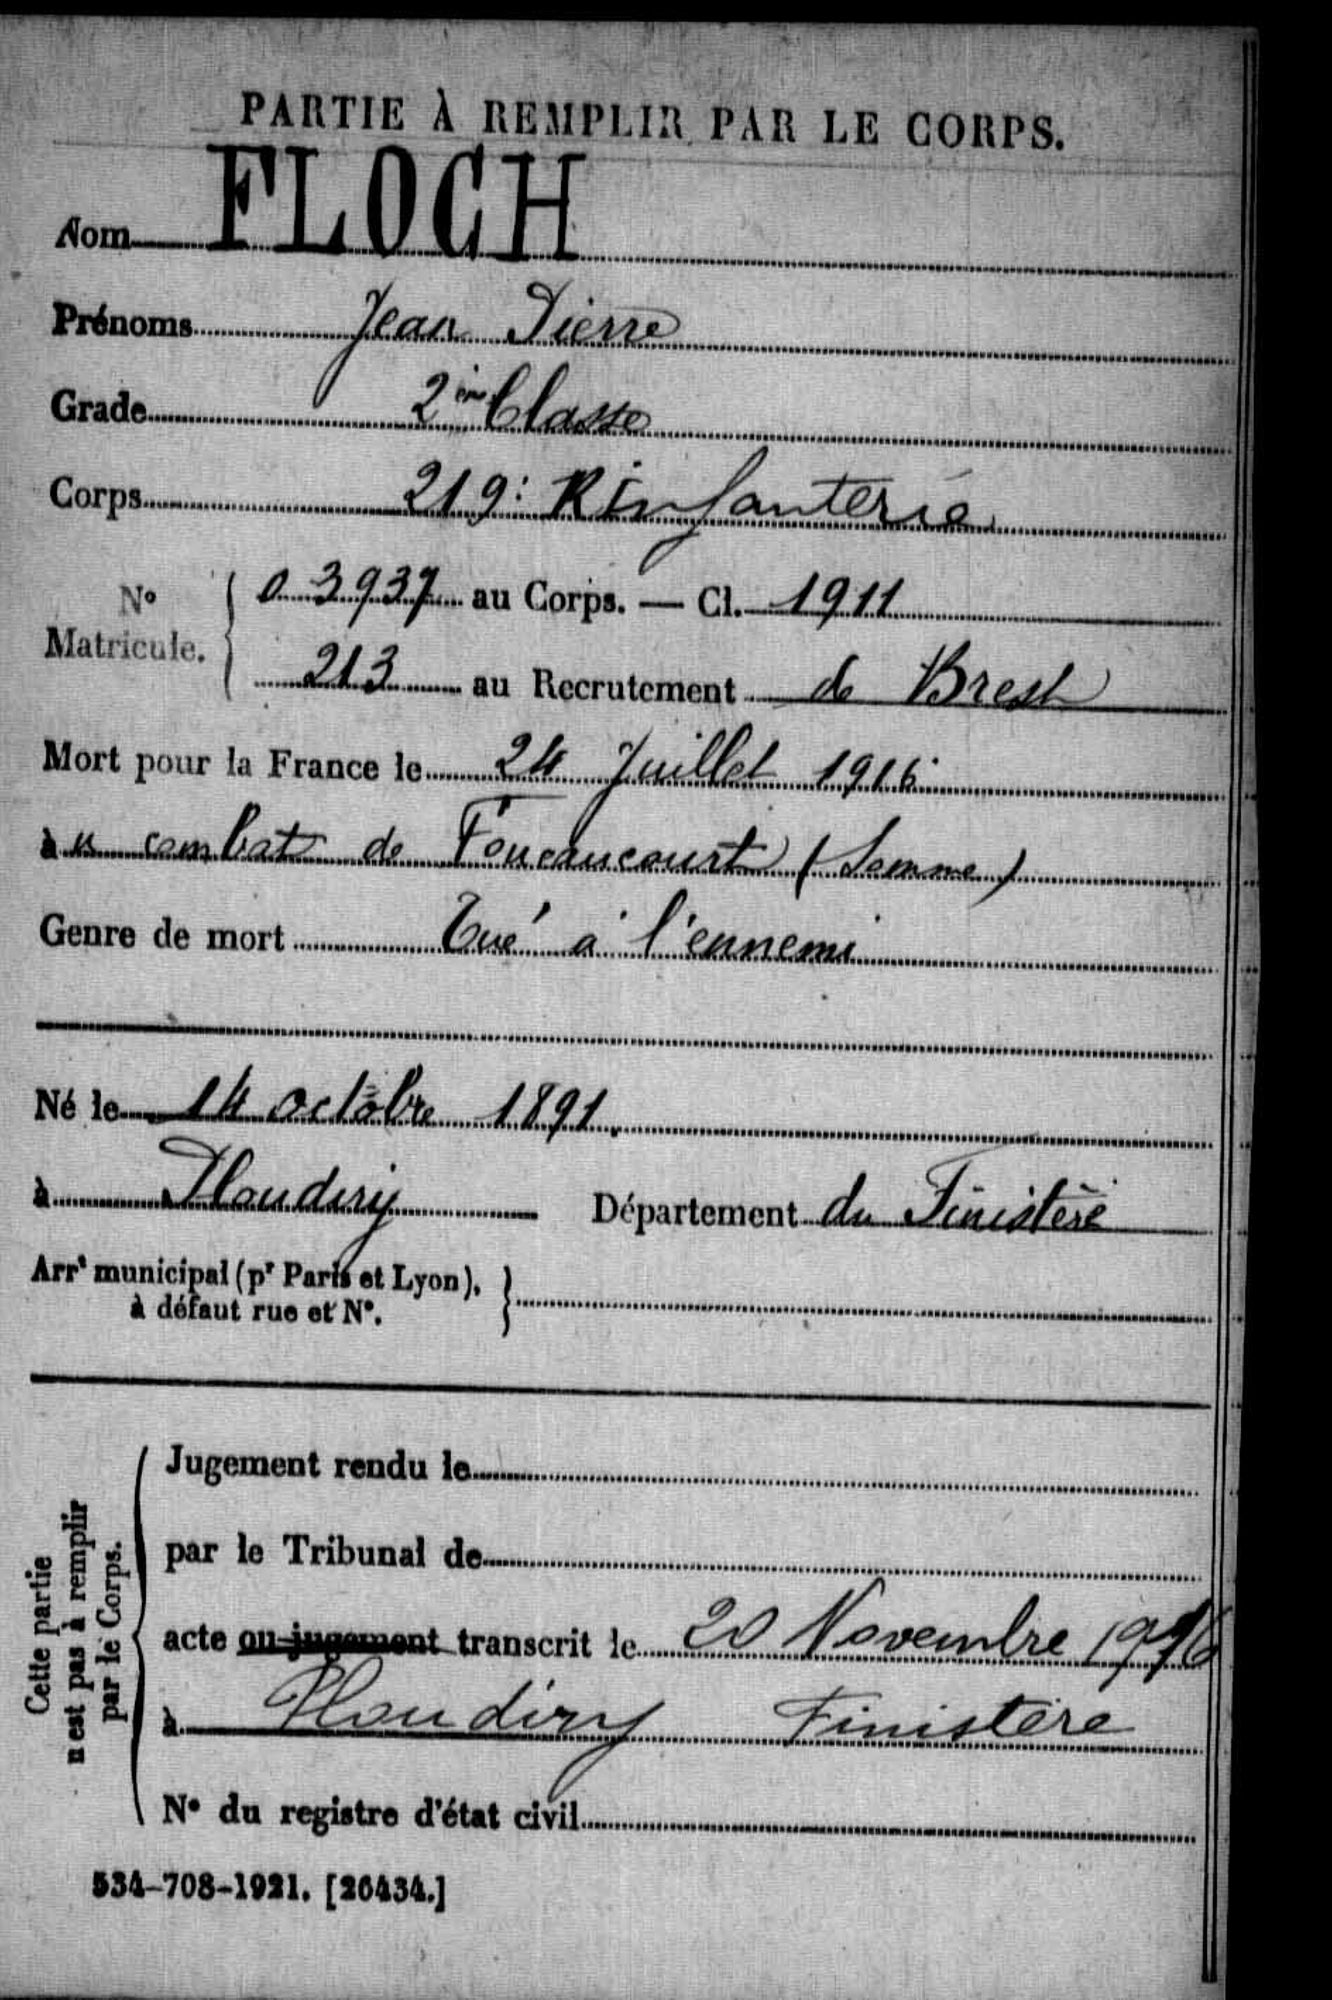 PARTIE À REMPLIR PAR LE CORPS.
Nom FLOCH
Prénoms Jean Pierre
Grade 2ème Classe
Corps 219: R Infanterie
No Matricule. { 0 3937 au Corps. — Cl. 1911
213 au Recrutement de Brest
Mort pour la France le 24 Juillet 1916
au combat de Foucaucourt (Somme)
Genre de mort Tué à l'ennemi
Né le 14 octobre 1891.
à Ploudiry Département du Finistère
Arrt municipal (pr Paris et Lyon), à défaut rue et No. }
Cette partie n'est pas à remplir par le Corps. {
Jugement rendu le
par le Tribunal de
acte ou jugement transcrit le 20 Novembre 1916
à Ploudiry Finistère
No du registre d'état civil
534-708-1921. [26434.]